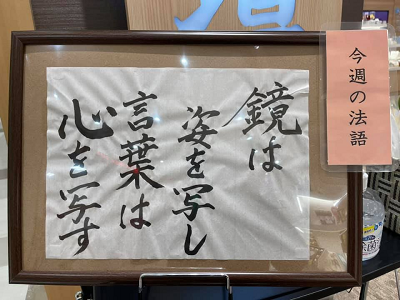 今週の法語
鏡は
姿を写し
言葉は
心を写す
除菌